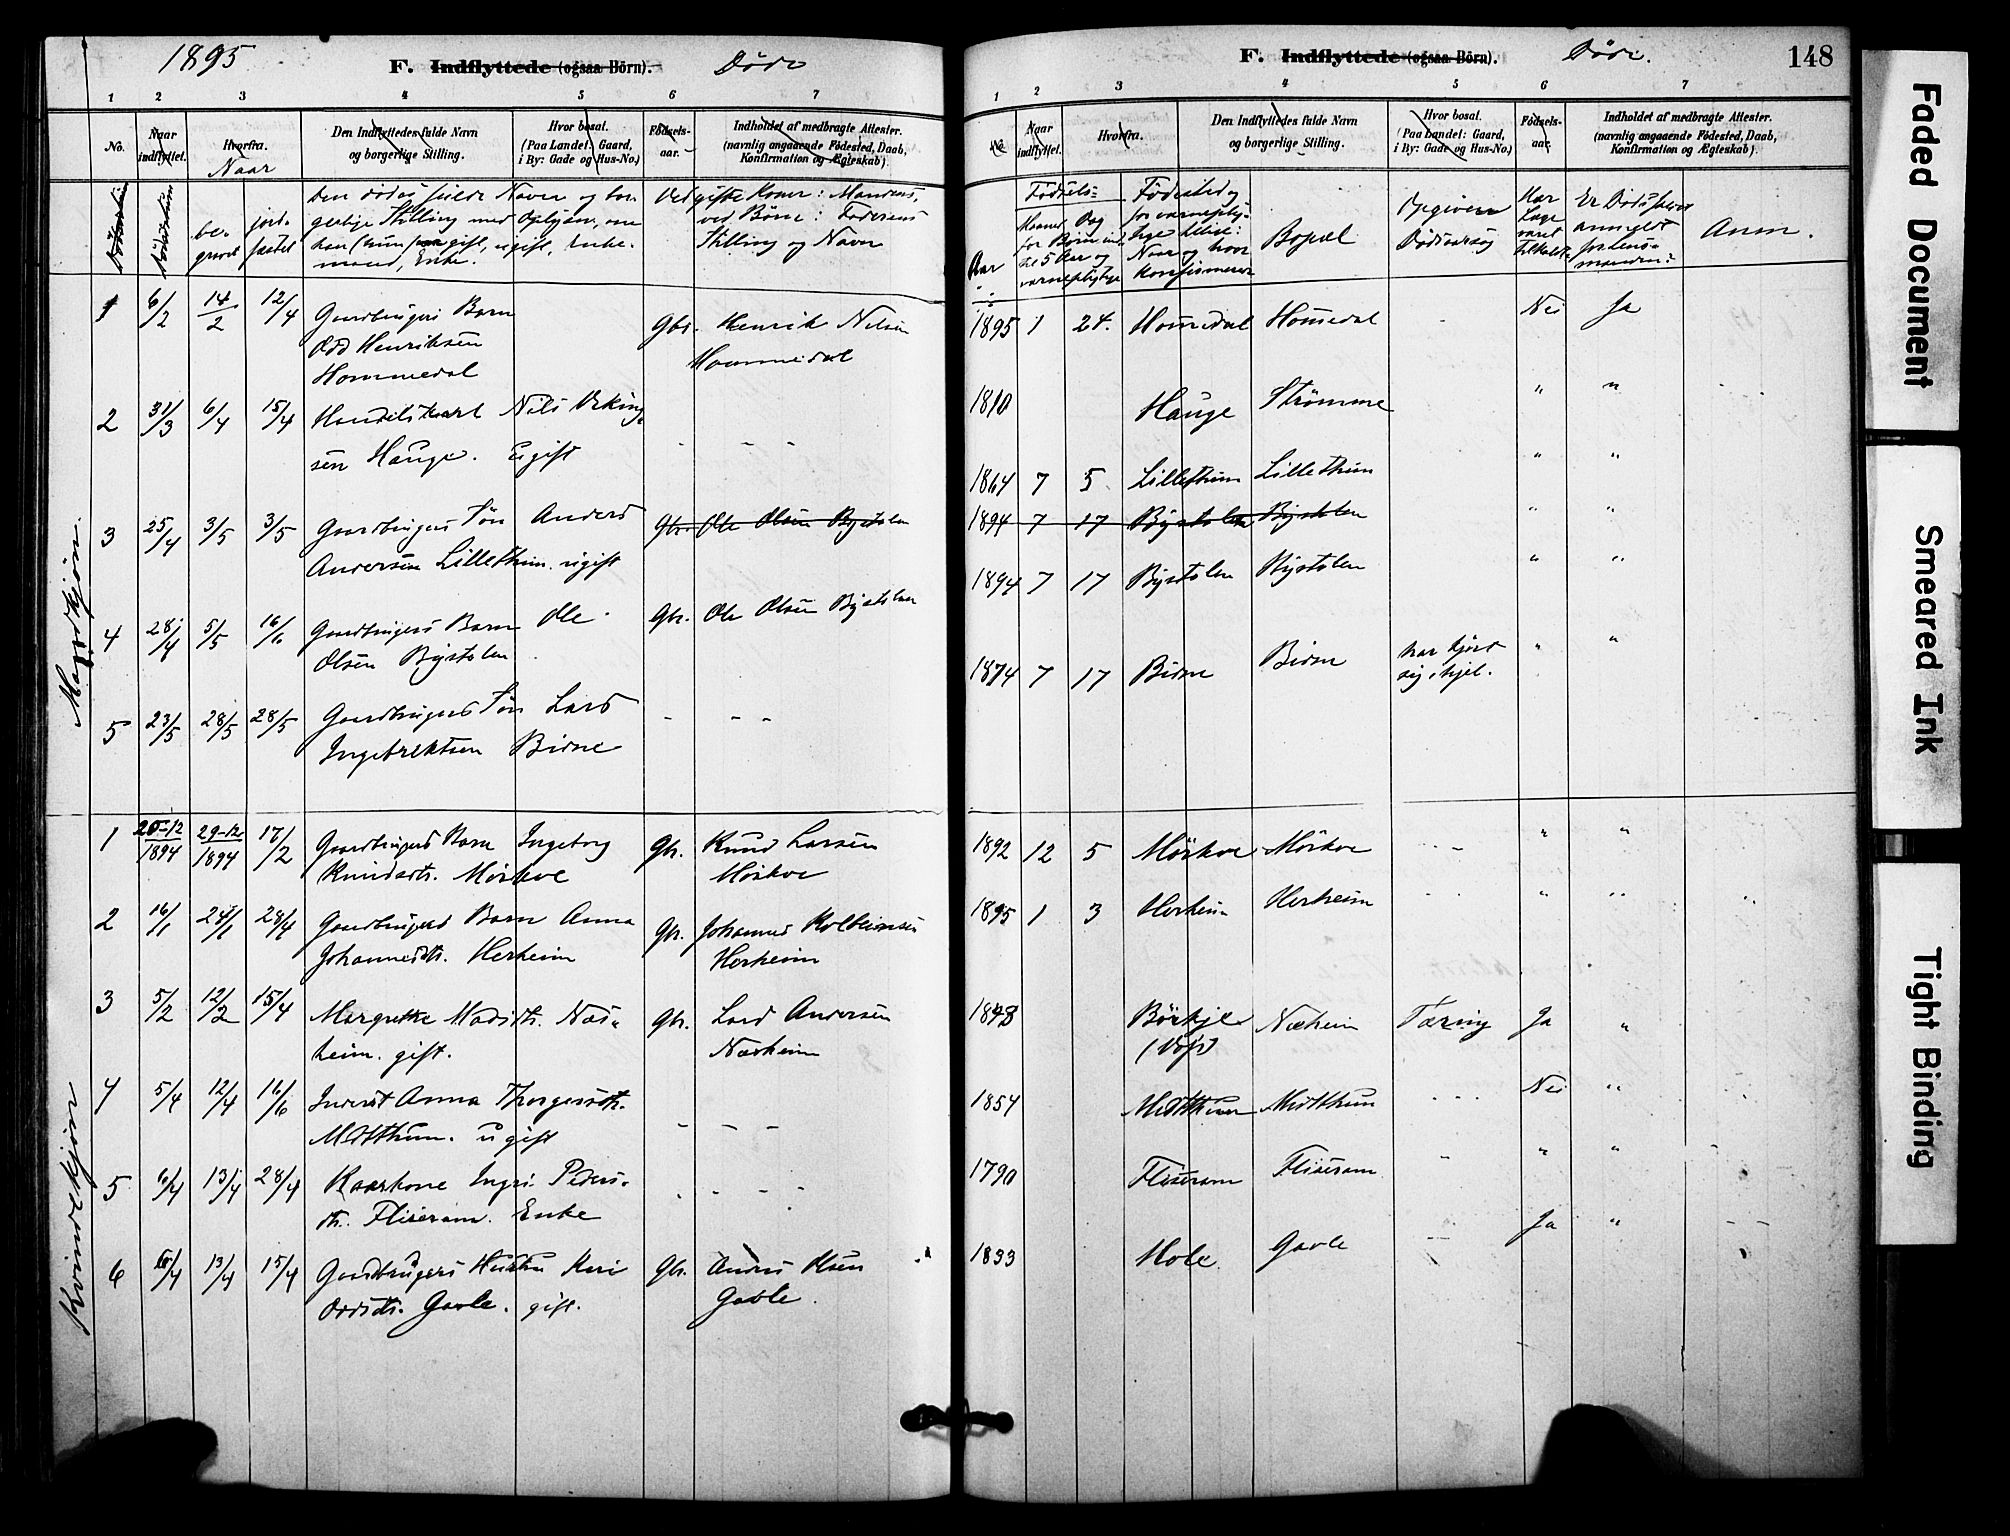 1895 F. Indflyttede (ogsaa Börn). Døde
1 2 3 4 5 6 7
No. Naar indflyttet. Hvorfra. Den Indflyttedes fulde Navn Hvor bosat. Fødsels- Indholdet af medbragte Attester.
og borgerlige Stilling. (Paa Landet: Gaard, aar. (navnlig angaaende Fødested, Daab,
i By: Gade og Hus-No.) Konfirmation og Ægteskab).
Naar
be-
gravet
jord-
fæstet
Den dødes fulde Navn og bor-
gerlige Stilling med Oplysn. om
han (hun) var gift, ugift, Enke-
mand, Enke.
Ved gifte Koner: Mandens,
ved Børn: Faderens
Stilling og Navn
Mandkjøn.
1 6/2 14/2 12/4 Gaardbrugers Barn
Odd Henriksen
Hommedal
Gbr. Henrik Nilsen
Hommedal
2 31/3 6/4 15/4 Handelskarl Nils Viking-
sen Hauge. ugift
- - -
3 25/4 3/5 3/5 Gaardbrugers Søn Anders
Andersen Lillethun. ugift
Gbr. Ole Olsen Bystølen
4 28/4 5/5 16/6 Gaardbrugers Barn Ole
Olsen Bystølen
Gbr. Ole Olsen Bystølen
5 23/5 28/5 28/5 Gaardbrugers Søn Lars
Ingebrektsen Bidne
- - -
Kvindekjøn
1 20-12/1894 29-12/1894 17/2 Gaardbrugers Barn Ingeborg
Knudsdtr. Mörkve
Gbr. Knud Larsen
Mörkve
2 16/1 24/1 28/4 Gaardbrugers Barn Anna
Johannesdtr. Herheim
Gbr. Johannes Kolbeinsen
Herheim
3 5/2 12/2 15/4 Margrethe Madsdtr. Næs-
heim. gift.
Gbr. Lars Andersen
Næsheim
4 5/4 12/4 16/6 Inderst Anna Thorgersdtr.
Midtthun. ugift
- - -
5 6/4 13/4 28/4 Kaarkone Ingri Peders-
dtr. Fliseram. Enke
- - - -
6 6/4 13/4 15/4 Gaardbrugers Hustru Kari
Oddsdtr. Gavle. gift.
Gbr. Anders Ksen
Gavle.
F. Indflyttede (ogsaa Börn). Døde. 148
1 2 3 4 5 6 7
No. Naar indflyttet. Hvorfra. Den Indflyttedes fulde Navn Hvor bosat. Fødsels- Indholdet af medbragte Attester.
og borgerlige Stilling. (Paa Landet: Gaard, aar. (navnlig angaaende Fødested, Daab,
i By: Gade og Hus-No.) Konfirmation og Ægteskab).
Aar
Fødsels-
Maaned Dag
for Børn ind
til 5 Aar og
værnepligtige
Fødested og
for værneplig-
tige tillige:
Naar og hvor
konfirmeret
Bopæl
Opgiven
Dødsaarsag
Har
Læge
været
tilkaldt
Er Dødsfaldet
anmeldt
for Lens-
manden?
Anm.
1895 1 24. Hommedal Hommedal - Nei Ja
1810 Hauge Strömme " "
1864 7 5 Lillethun Lillethun " "
1894 7 17 Bystølen Bystølen " "
1894 7 17 Bystølen Bystølen " "
1874 7 17 Bidne Bidne har kjørt
sig ihjel. " "
1892 12 5 Mörkve Mörkve - - " "
1895 1 3 Herheim Herheim - - " "
1843 Börkje
(Vos) Næsheim Tæring Ja "
1854 Midtthun Midtthun - - - Nei "
1790 Fliseram Fliseram - " "
1833 Hole Gavle - Ja " - -
Faded Document
Smeared Ink
Tight Binding